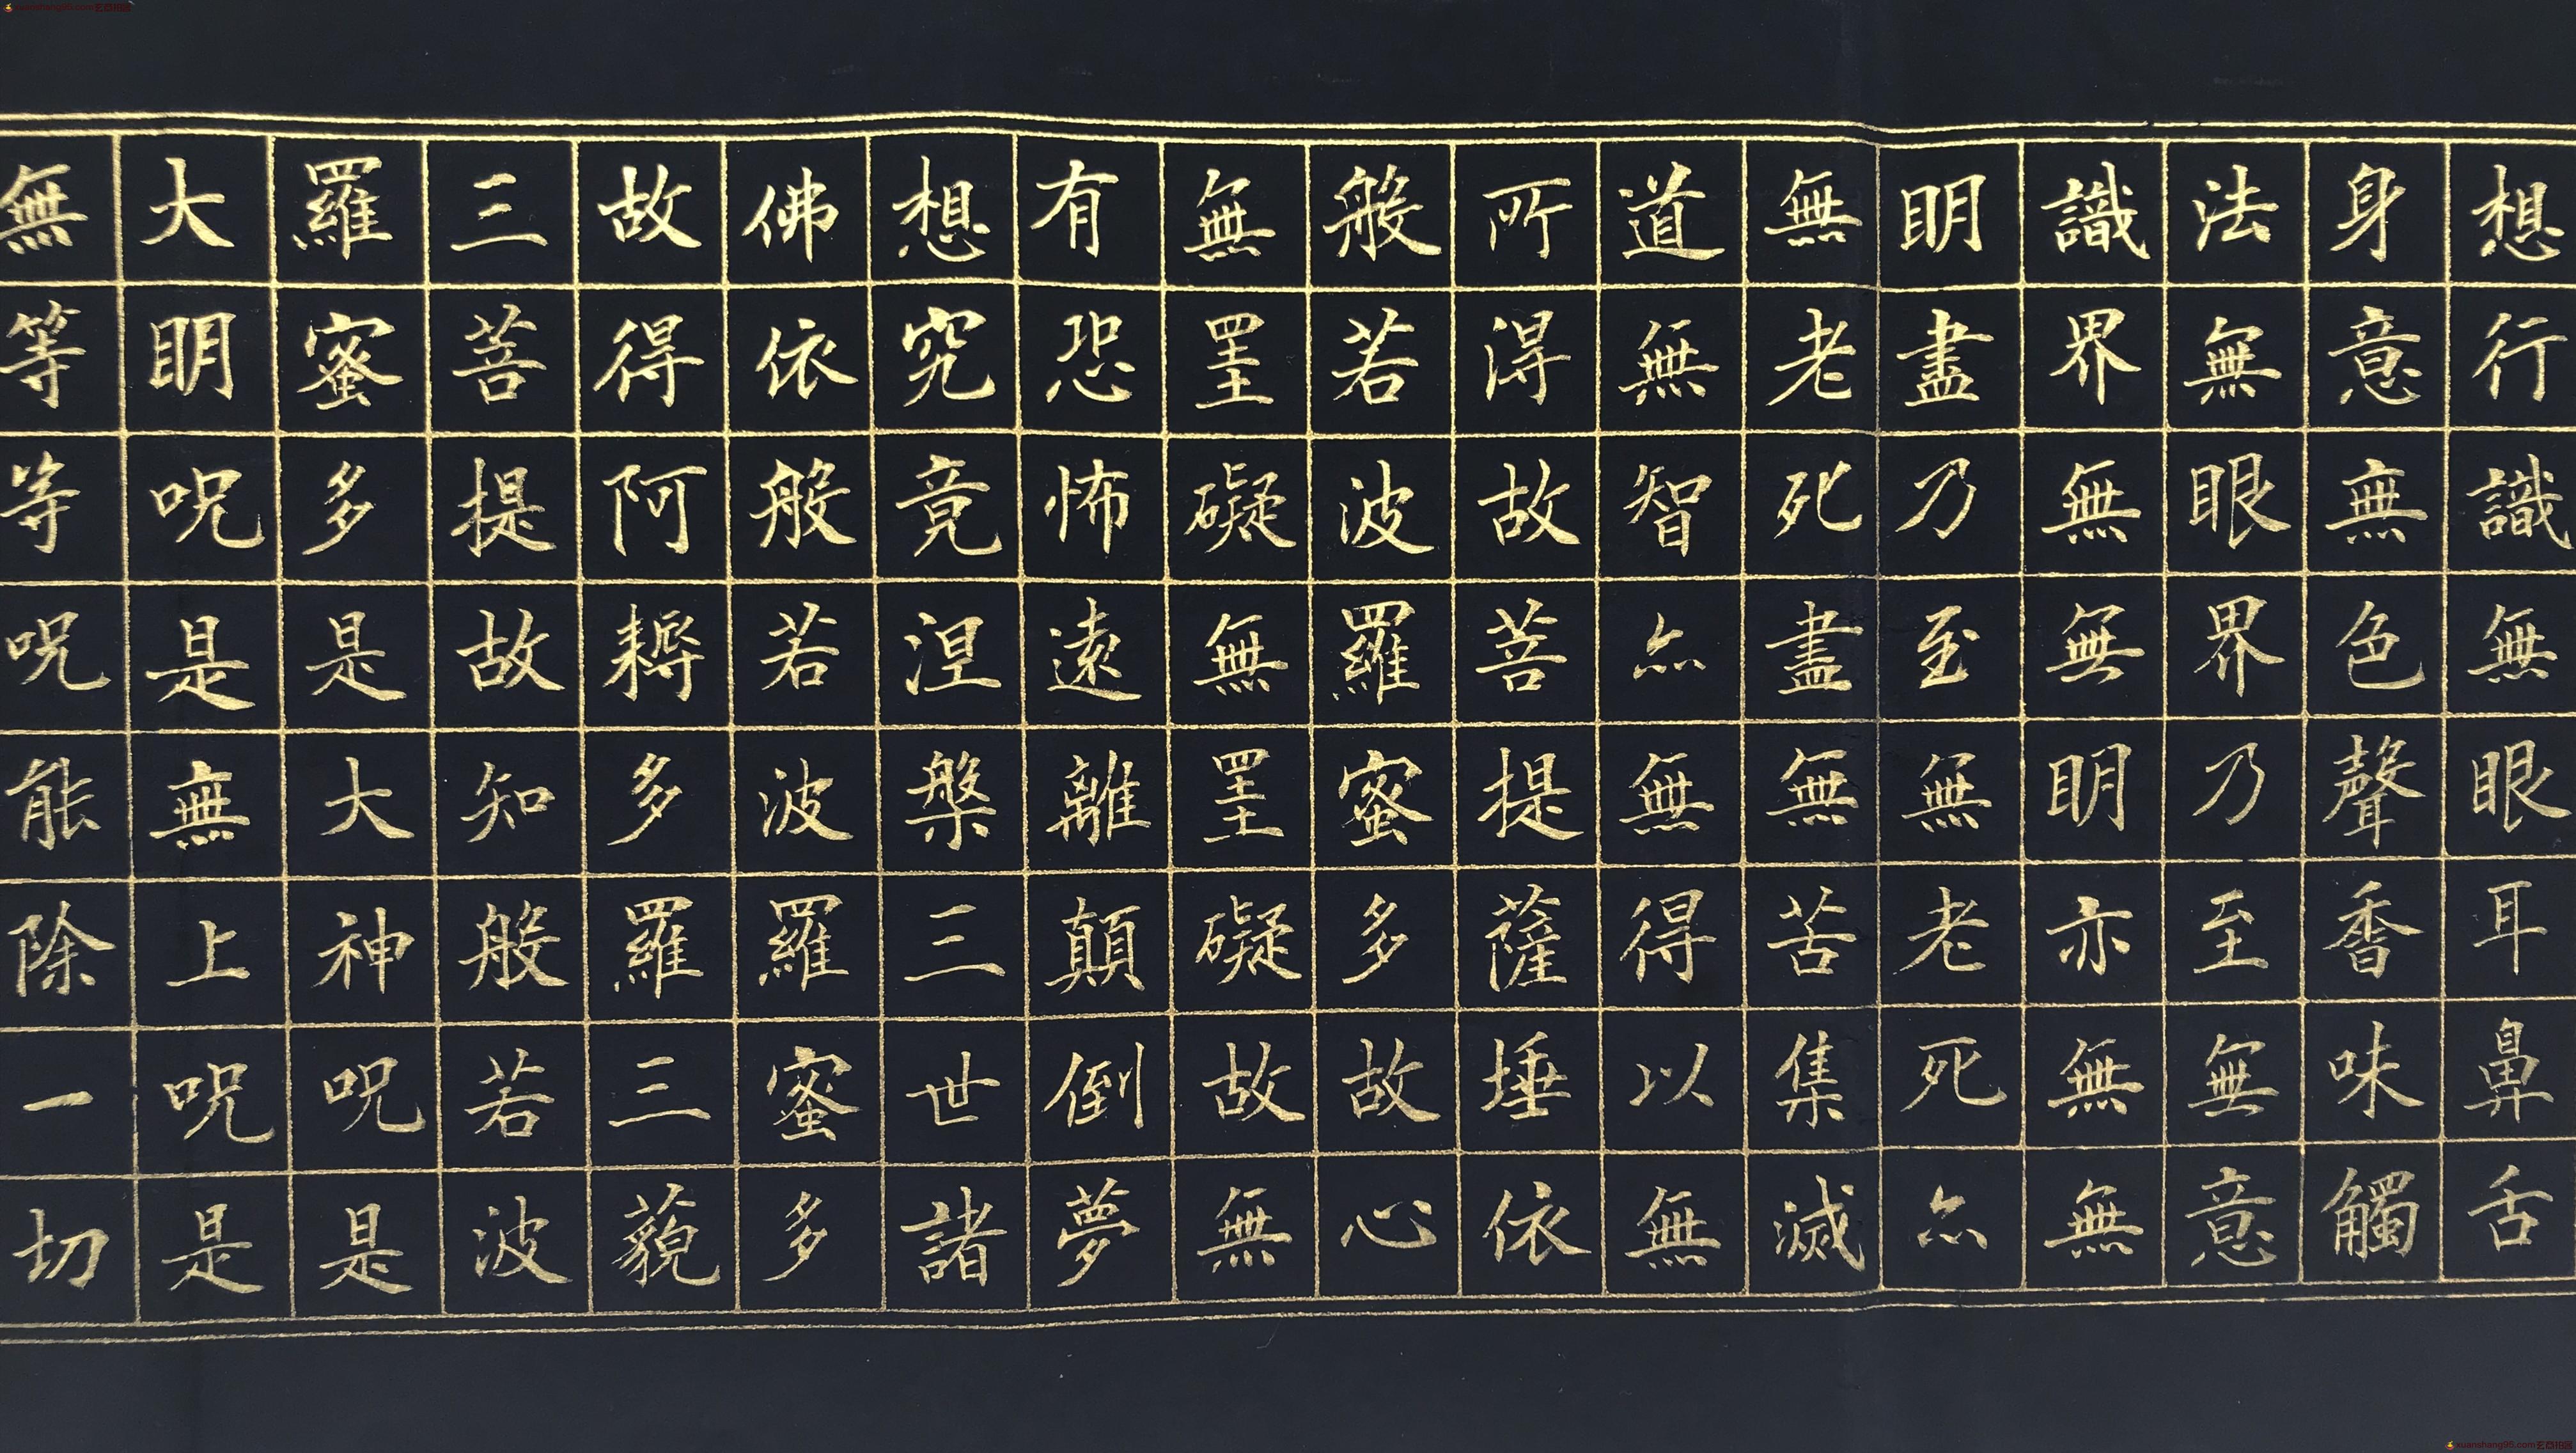 想行識無眼耳鼻舌
身意無色聲香味觸
法無眼界乃至無意
識界無無明亦無無
明盡乃至無老死亦
無老死盡無苦集滅
道無智亦無得以無
所得故菩提薩埵依
般若波羅蜜多故心
無罣礙無罣礙故無
有恐怖遠離顛倒夢
想究竟涅槃三世諸
佛依般若波羅蜜多
故得阿耨多羅三藐
三菩提故知般若波
羅蜜多是大神呪是
大明呪是無上呪是
無等等呪能除一切